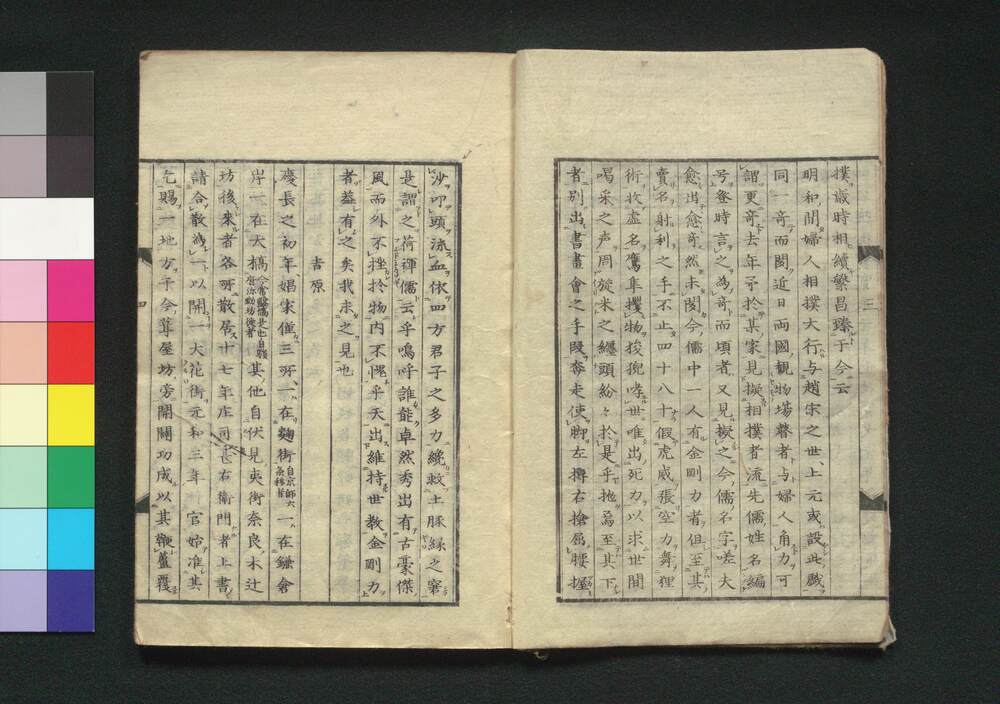 撲歳時相續繁昌臻于今云
明和間婦人相撲大行与趙宋之世上元或設此戯
同一奇而閲近日両國観物塲瞽者与婦人角力可
謂更奇去年予於某家見擬相撲者流先儒姓名編
号當時言之為奇而頃者又見擬之今儒名字嗟夫
愈出愈奇然未閲今儒中一人有金剛力者但至其
賣名射利之手不止四十八十假虎威張空力舞狸
術收虚名鷹隼攫物狻猊哮世唯出死力以求世間
喝采之声周旋米之纏頭紛々於是乎拖焉至其下
者別出書畫會之手段奔走使脚左搏右搶屈腰握
沙叩頭流血依四方君子之多力纔救土豚緑之窘
是謂之荷褌儒云乎嗚呼誰能卓然秀出有古豪傑
風而外不挫於物内不愧乎天出維持世教金剛力
者蓋有之矣我未之見也
吉原
慶長之初年娼家僅三所一在麹街自京師六条移者一在鎌倉
岸一在大橋今常盤橋是也自駿府弥勒坊徙者其他自伏見夷街奈良木辻
坊後來者各所散居十七年庄司甚右衛門者上書
請合散為一以開一大花街元和三年官始准其
乞賜一地方于今葺屋坊旁開闢功成以其鞭蘆覆
三
四